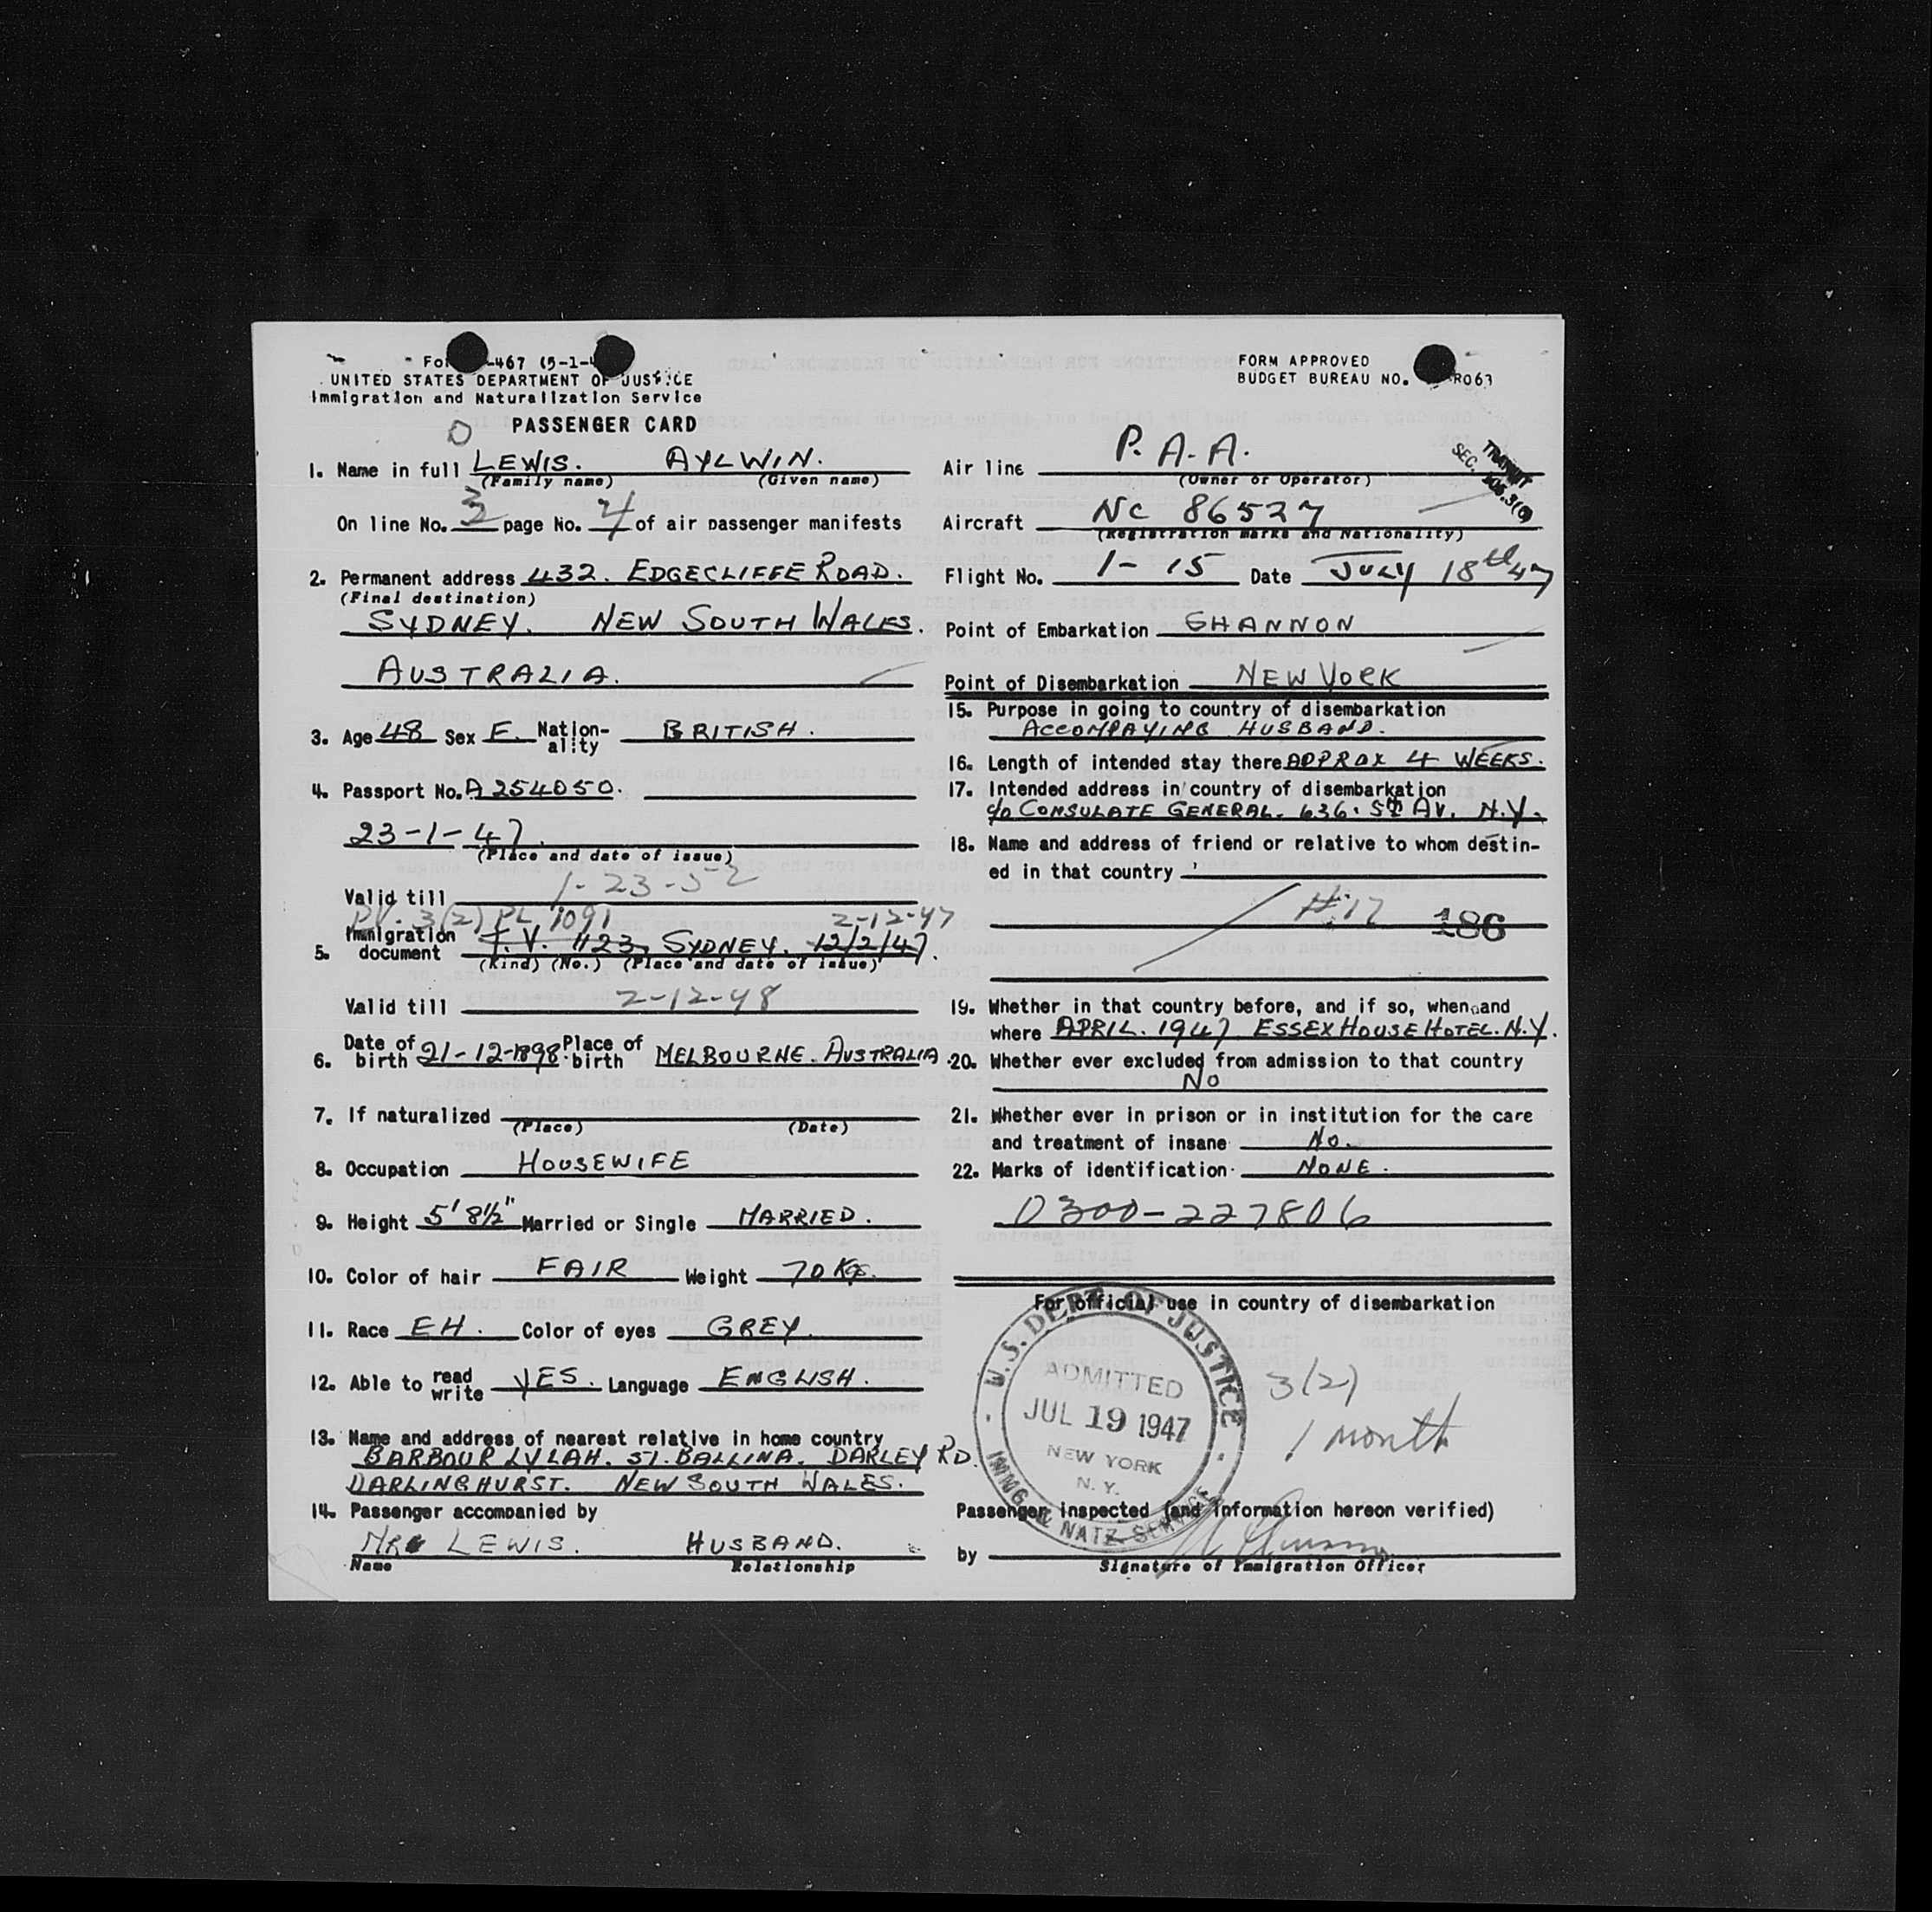 -467 (5-1-
UNITED STATES DEPARTMENT OF JUSTICE
Immigration and Naturalization Service
PASSENGER CARD
1. Name in full LEWIS. AYLWIN.
(Family name) (Given name)
On line No. 3 page No. 4 of air passenger manifests
2. Permanent address 432. EDGECLIFFE ROAD.
(Final destination)
SYDNEY. NEW SOUTH WALES.
AUSTRALIA.
3. Age 48 Sex F. Nationality BRITISH.
4. Passport No. A 254050.
23-1-47.
(Place and date of issue)
Valid till 1-23-52
PV. 3(2) PL 1091 2-12-47
5. Immigration document T.V. 423, SYDNEY. 12/2/47.
(Kind) (No.) (Place and date of issue)
Valid till 2-12-48
6. Date of birth 21-12-1898. Place of birth MELBOURNE. AUSTRALIA.
7. If naturalized
(Place) (Date)
8. Occupation HOUSEWIFE
9. Height 5' 8½" Married or Single MARRIED.
10. Color of hair FAIR Weight 70 Kgs.
11. Race EH. Color of eyes GREY.
12. Able to read write YES. Language ENGLISH.
13. Name and address of nearest relative in home country
BARBOUR LYLAH. 51. BALLINA. DARLEY RD.
DARLINGHURST. NEW SOUTH WALES.
14. Passenger accompanied by
MR LEWIS. HUSBAND.
Name Relationship
FORM APPROVED
BUDGET BUREAU NO. R063
Air line P.A.A.
(Owner or Operator)
TRANSIT
SEC.
Aircraft NC 86527
(Registration marks and Nationality)
Flight No. 1-15 Date JULY 18th 47
Point of Embarkation SHANNON
Point of Disembarkation NEW YORK
15. Purpose in going to country of disembarkation
ACCOMPAYING HUSBAND.
16. Length of intended stay there APPROX 4 WEEKS.
17. Intended address in country of disembarkation
c/o CONSULATE GENERAL. 636. 5th AV. N.Y.
18. Name and address of friend or relative to whom destin-
ed in that country
#17 186
19. Whether in that country before, and if so, when and
where APRIL. 1947 ESSEX HOUSE HOTEL. N.Y.
20. Whether ever excluded from admission to that country
NO
21. Whether ever in prison or in institution for the care
and treatment of insane NO.
22. Marks of identification NONE.
0300-227806
For official use in country of disembarkation
U.S. DEPT. OF JUSTICE
ADMITTED
JUL 19 1947
NEW YORK
N. Y.
IMMG. & NATZ. SERVICE
3(2)
1 month
Passenger inspected (and information hereon verified)
by
Signature of Immigration Officer